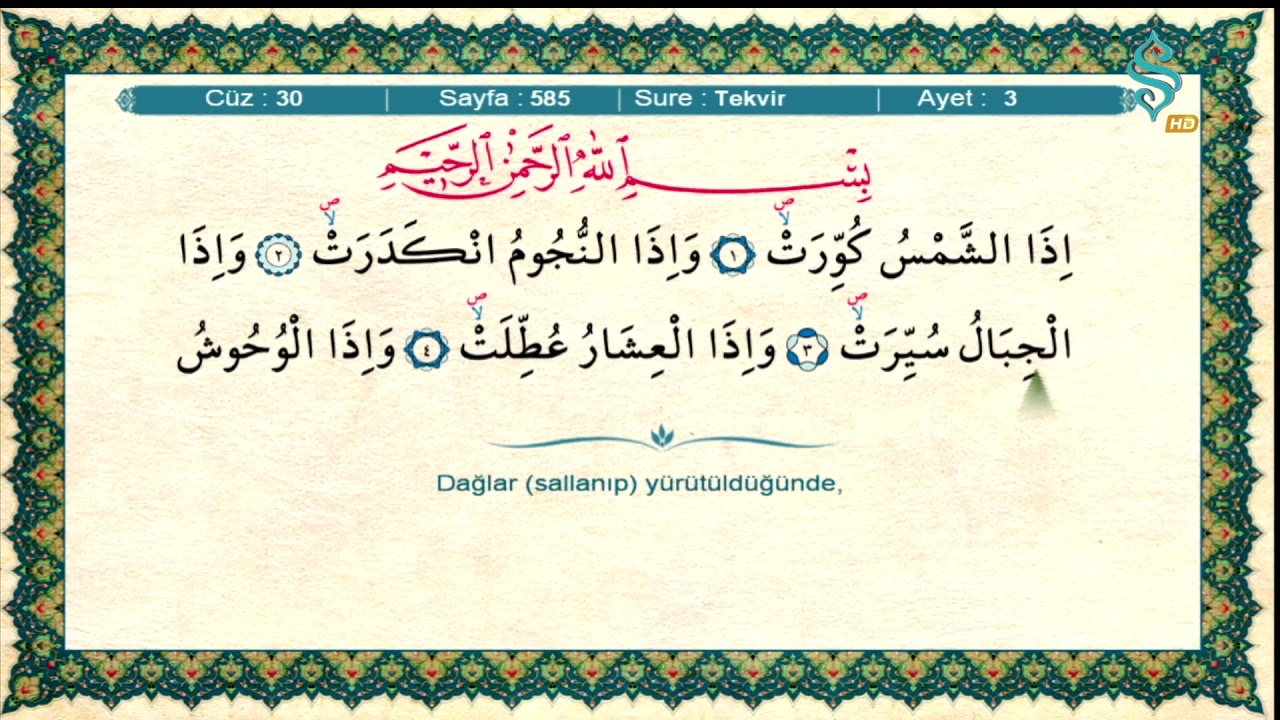 Cüz : 30 | Sayfa : 585 | Sure : Tekvir | Ayet : 3
HD
بِسْمِ ٱللّٰهِ ٱلرَّحْمٰنِ ٱلرَّح۪يمِ
اِذَا الشَّمْسُ كُوِّرَتْۙۖ ﴿١﴾ وَاِذَا النُّجُومُ انْكَدَرَتْۙۖ ﴿٢﴾ وَاِذَا
الْجِبَالُ سُيِّرَتْۙۖ ﴿٣﴾ وَاِذَا الْعِشَارُ عُطِّلَتْۙۖ ﴿٤﴾ وَاِذَا الْوُحُوشُ
Dağlar (sallanıp) yürütüldüğünde,